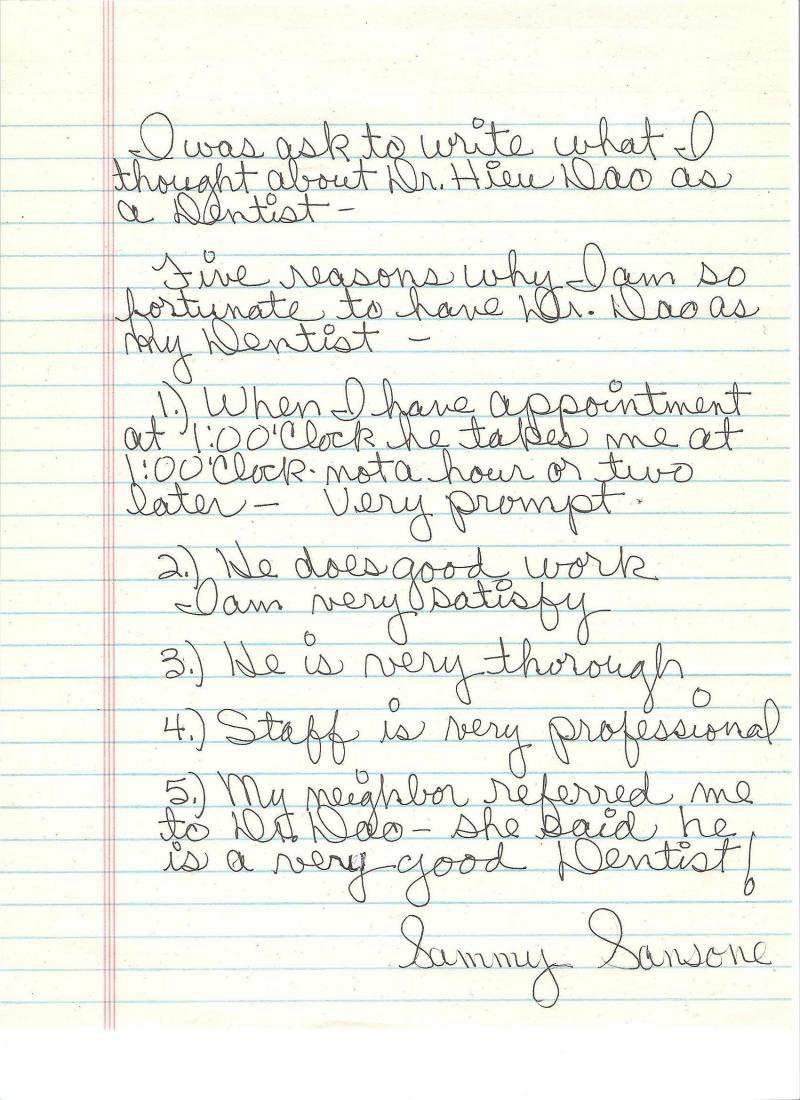 I was ask to write what I
thought about Dr. Hieu Dao as
a Dentist -
Five reasons why I am so
fortunate to have Dr. Dao as
my Dentist -
1.) When I have appointment
at 1:00 O'Clock he takes me at
1:00 O'Clock. not a hour or two
later - Very prompt.
2.) He does good work
I am very satisfy
3.) He is very thorough
4.) Staff is very professional
5.) My neighbor referred me
to Dr. Dao - she said he
is a very good Dentist!
Sammy Sansone